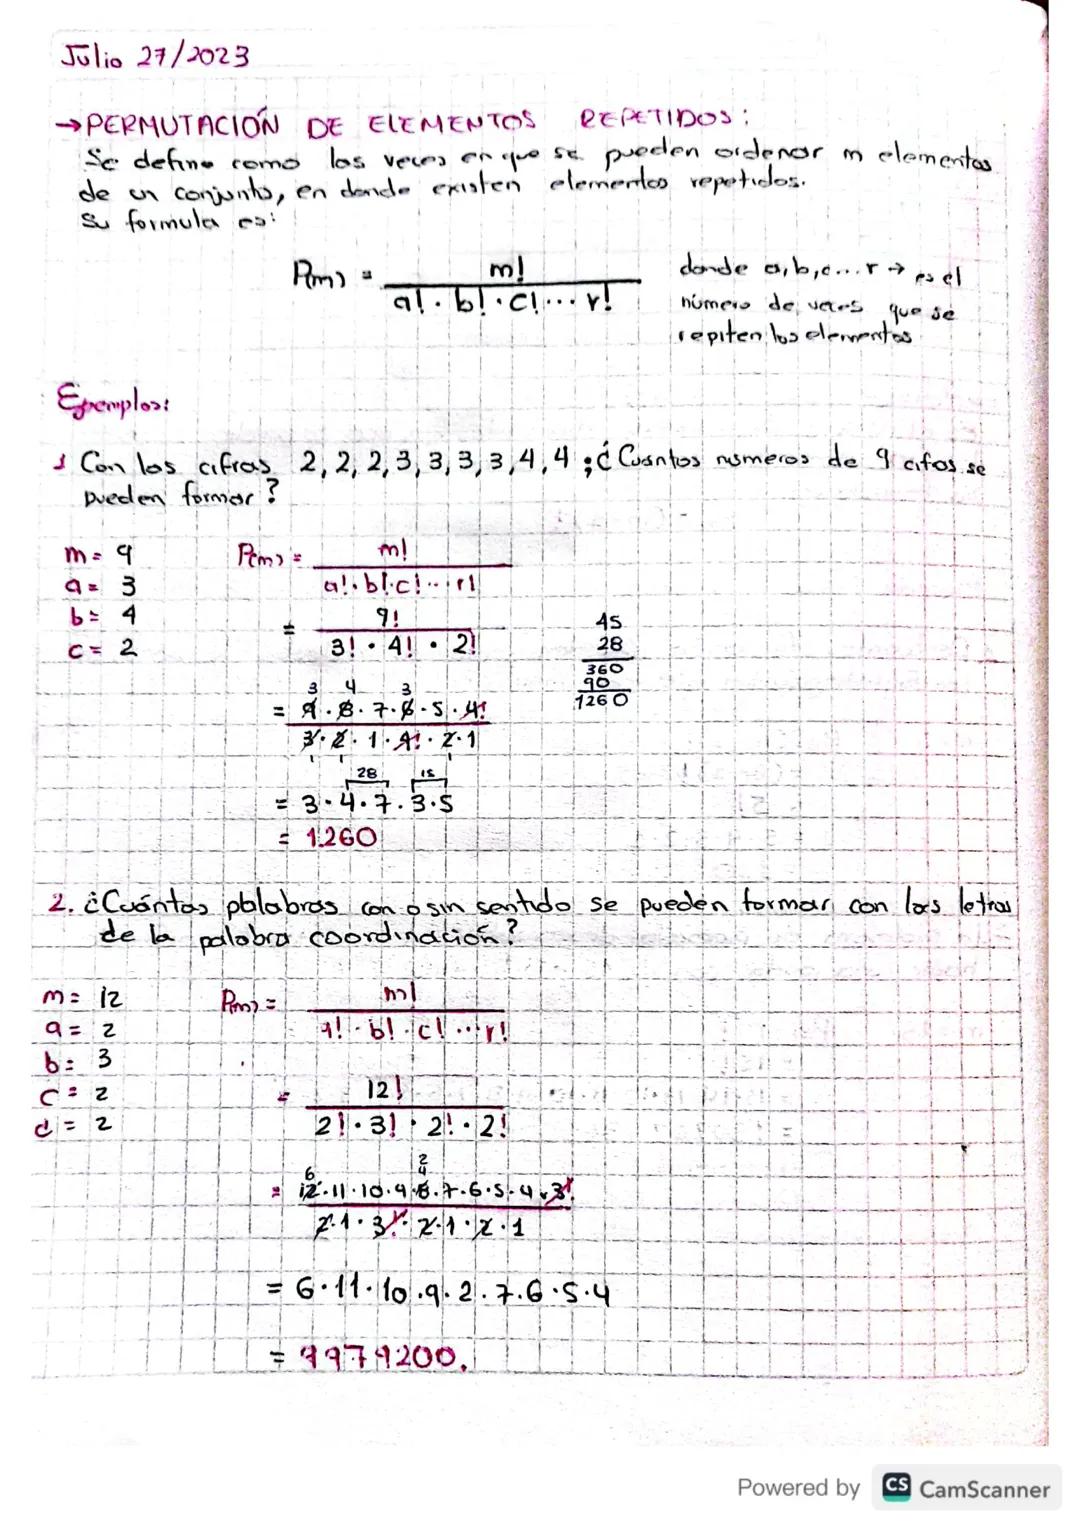 Julio 27/2023
→PERMUTACIÓN DE ELEMENTOS REPETIDOS:
Se define como las veces en que se pueden ordenar m elementos
de un conjunto, en donde existen elementos repetidos.
Su formula es:
P(m) = m! / a! · b! · c! ... r!
donde a, b, c ... r → es el
número de veces que se
repiten los elementos
Ejemplos:
1 Con las cifras 2, 2, 2, 3, 3, 3, 3, 4, 4 ; ¿Cuantos numeros de 9 cifas se
pueden formar?
m = 9
a = 3
b = 4
c = 2
P(m) = m! / a! · b! · c! ... r!
= 9! / 3! · 4! · 2!
3 4 3
= 9 · 8 · 7 · 6 · 5 · 4! / 3 · 2 · 1 · 4! · 2 · 1
1 1 1
28 15
= 3 · 4 · 7 · 3 · 5
= 1.260
45
28
360
90
1260
2. ¿Cuántas palabras con o sin sentido se pueden formar con las letras
de la palabra coordinación?
m = 12
a = 2
b = 3
c = 2
d = 2
P(m) = m! / a! · b! · c! ... r!
= 12! / 2! · 3! · 2! · 2!
6 2 4
= 12 · 11 · 10 · 9 · 8 · 7 · 6 · 5 · 4 · 3! / 2 · 1 · 3! · 2 · 1 · 2 · 1
= 6 · 11 · 10 · 9 · 2 · 7 · 6 · 5 · 4
= 9979200.
Powered by CS CamScanner